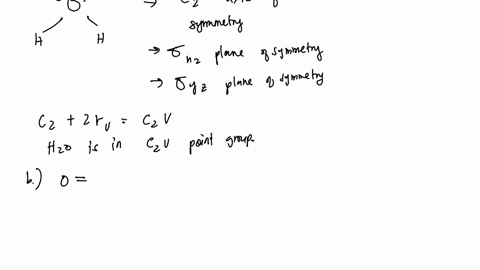 O
→ C2 axis of
symmetry
H H
→ σxz plane of symmetry
→ σyz plane of symmetry
C2 + 2σv = C2V
H2O is in C2V point group.
b.) O =